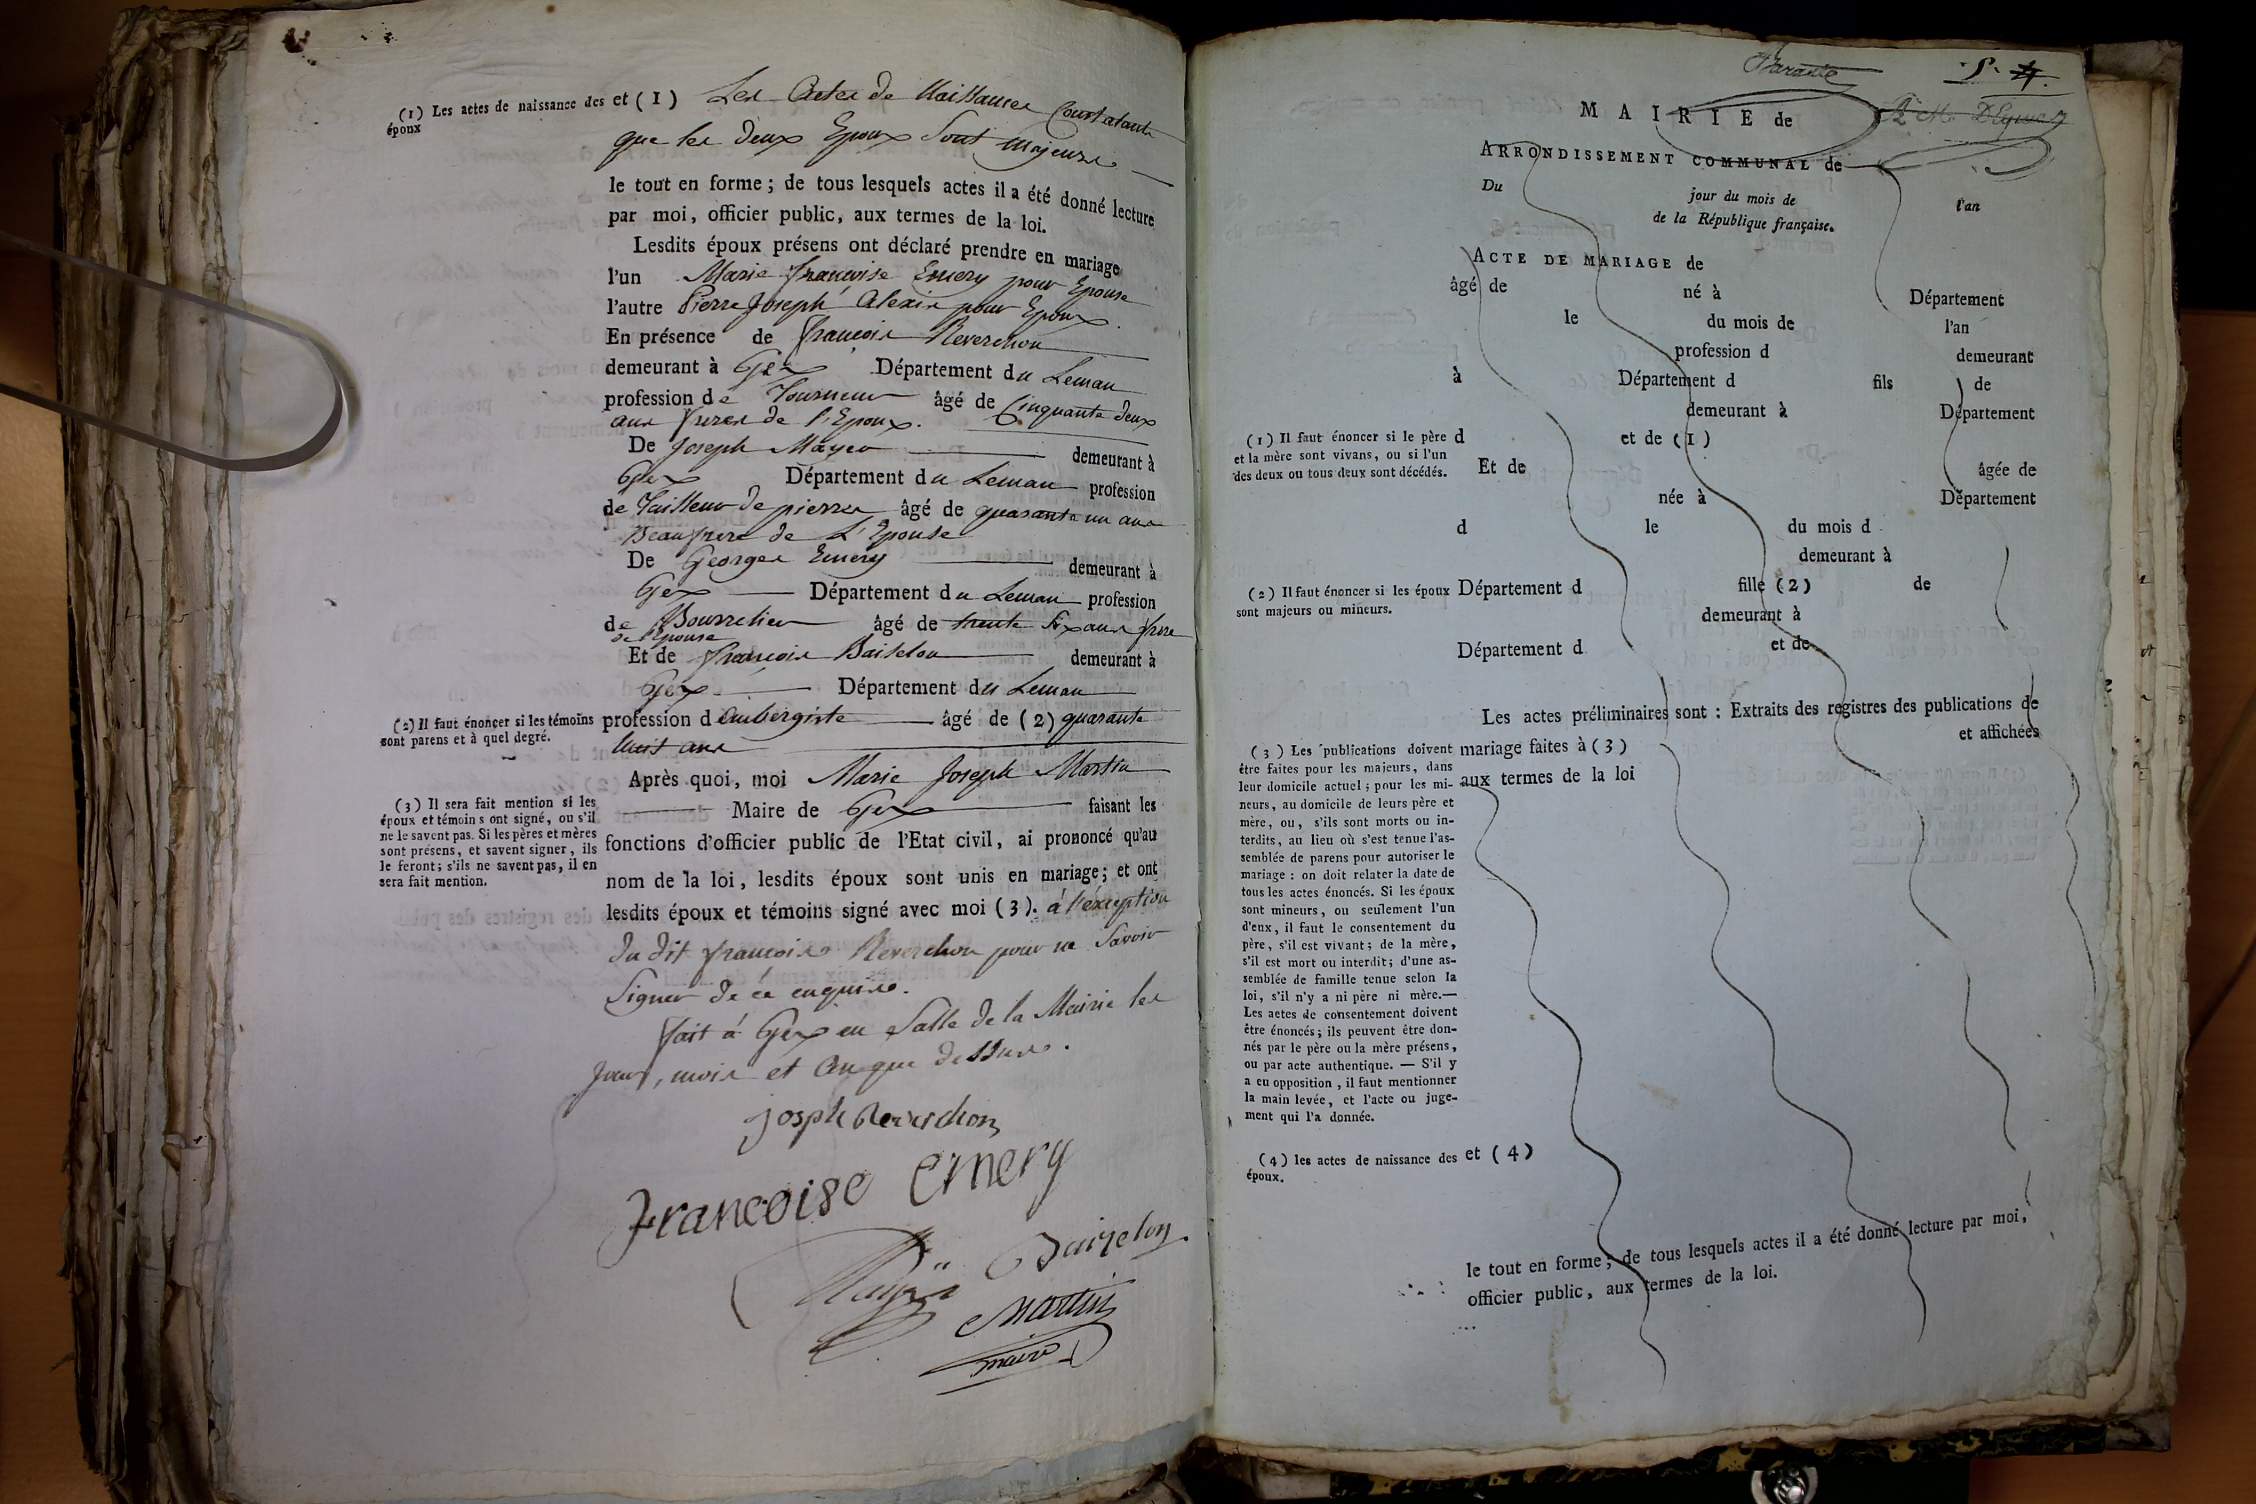 (1) Les actes de naissance des époux
et (1) Les Actes de Naissances Constatants
que les deux Epoux Sont majeurs
le tout en forme; de tous lesquels actes il a été donné lecture
par moi, officier public, aux termes de la loi.
Lesdits époux présens ont déclaré prendre en mariage
l'un Marie françoise Emery pour Epouse
l'autre Pierre Joseph Alexis pour Epoux.
En présence de françois Reverchon
demeurant à Gex Département du Leman
profession de Tourneur âgé de Cinquante deux
ans freres de l'Epoux.
De Joseph Mayer demeurant à
Gex Département du Leman profession
de Tailleur de pierres âgé de quarante un ans
Beaufrere de L'Epouse
De Georges Emery demeurant à
Gex Département du Leman profession
de Bourrelier âgé de trente Six ans frere
de l'Epouse
Et de françois Baiselon demeurant à
Gex Département du Leman
(2) Il faut énoncer si les témoins
sont parens et à quel degré.
profession d'aubergiste âgé de (2) quarante
huit ans
Après quoi, moi Marie Joseph Martin
Maire de Gex faisant les
(3) Il sera fait mention si les
époux et témoins ont signé, ou s'il
ne le savent pas. Si les pères et mères
sont présens, et savent signer, ils
le feront; s'ils ne savent pas, il en
sera fait mention.
fonctions d'officier public de l'Etat civil, ai prononcé qu'au
nom de la loi, lesdits époux sont unis en mariage; et ont
lesdits époux et témoins signé avec moi (3). à l'éxception
du dit françois Reverchon pour ne Savoir
Signer de ce enquis.
fait à Gex en Salle de la Mairie les
Jour, mois et An que dessus.
joseph Reverchon
francoise emery
Baizelon
Martin
maire
MAIRIE de
ARRONDISSEMENT COMMUNAL de
Du jour du mois de l'an
de la République française.
ACTE DE MARIAGE de
âgé de né à Département
le du mois de l'an
profession d demeurant
à Département d fils de
demeurant à Département
(1) Il faut énoncer si le père
et la mère sont vivans, ou si l'un
des deux ou tous deux sont décédés.
d et de (1)
Et de âgée de
née à Département
d le du mois d
demeurant à
(2) Il faut énoncer si les époux
sont majeurs ou mineurs.
Département d fille (2) de
demeurant à
Département d et de
Les actes préliminaires sont : Extraits des registres des publications de
mariage faites à (3) et affichées
aux termes de la loi
(3) Les publications doivent
être faites pour les majeurs, dans
leur domicile actuel; pour les mi-
neurs, au domicile de leurs père et
mère, ou, s'ils sont morts ou in-
terdits, au lieu où s'est tenue l'as-
semblée de parens pour autoriser le
mariage : on doit relater la date de
tous les actes énoncés. Si les époux
sont mineurs, ou seulement l'un
d'eux, il faut le consentement du
père, s'il est vivant; de la mère,
s'il est mort ou interdit; d'une as-
semblée de famille tenue selon la
loi, s'il n'y a ni père ni mère.—
Les actes de consentement doivent
être énoncés; ils peuvent être don-
nés par le père ou la mère présens,
ou par acte authentique. — S'il y
a eu opposition, il faut mentionner
la main levée, et l'acte ou juge-
ment qui l'a donnée.
(4) les actes de naissance des
époux.
et (4)
le tout en forme; de tous lesquels actes il a été donné lecture par moi,
officier public, aux termes de la loi.